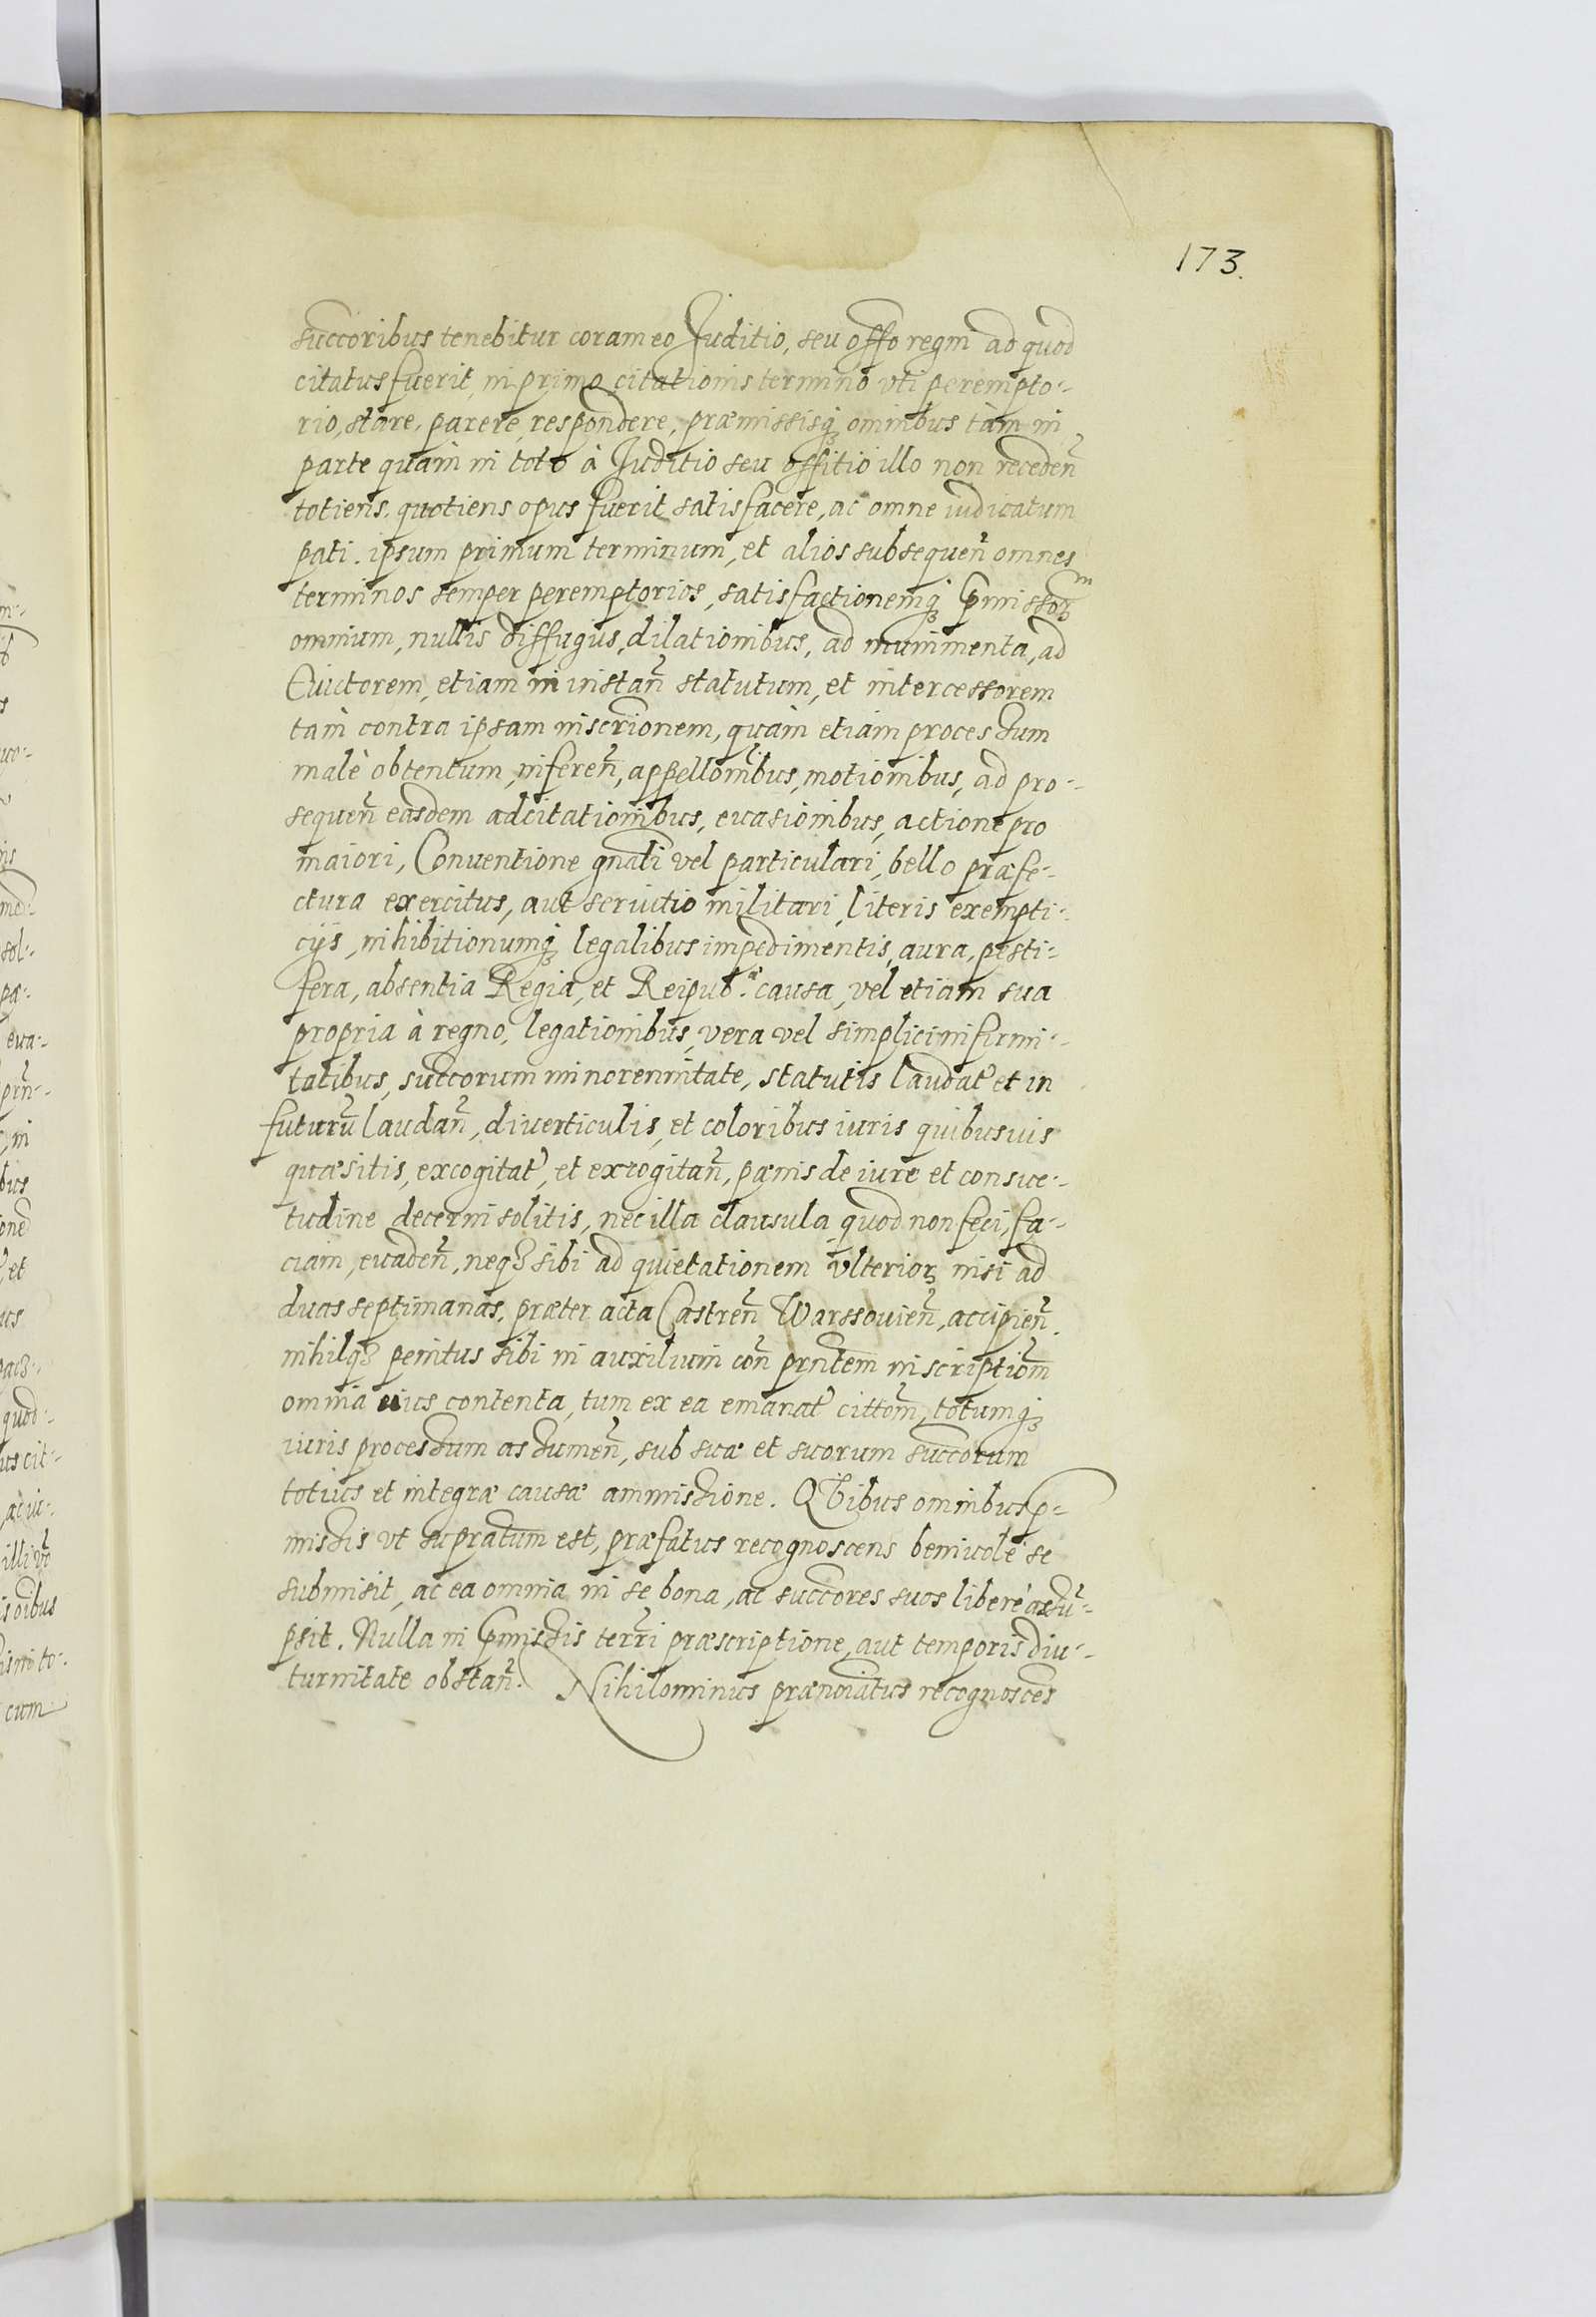 173.
succoribus tenebitur coram eo Juditio, seu offo regni ad quod
citatus fuerit, in primo citationis termino vti perempto-
rio, stare, parere, respondere, præmissisq3 omnibus tàm in
parte quàm in toto à Juditio seu offitio illo non receden̄
totiens, quotiens opus fuerit satisfacere, ac omne iudicatum
pati. ipsum primum terminum, et alios subsequen̄ omnes
terminos semper peremptorios, satisfactionemq3 p̄missor
omnium, nullis diffugiis, dilationibus, ad munimenta, ad
Euictorem, etiam in instan̄ statutum, et intercessorem
tàm contra ipsam inscrionem, quàm etiam processum
malè obtentum, inferen̄, appellom̄bus, motionibus, ad pro-
sequen̄ easdem adcitationibus, euasionibus, actione pro
maiori, Conuentione gnali vel particulari, bello præfe-
ctura exercitus, aut seruitio militari, literis exempti-
cijs, inhibitionumq3 legalibus impedimentis, aura, pesti-
fera, absentia Regia, et Reipub.æ causa, vel etiam sua
propria à regno, legationibus, vera vel simplici infirmi-
tatibus, succorum minorennitate, statutis laudat̄ et in
futurū laudan̄, diuerticulis, et coloribus iuris quibusuis
quæsitis, excogitat̄, et excogitan̄, pænis de iure et consue-
tudine decerni solitis, nec illa clausula quod non feci, fa-
ciam, euaden̄, neq3 sibi ad quietationem vlterior nisi ad
duas septimanas, præter acta Castren̄ Warssouien̄, accipien̄.
nihilq3 penitus sibi in auxilium con̄ prntem inscriptiom̄
omnia eius contenta, tum ex ea emanat̄ cittom̄, totumq3
iuris processum assumen̄, sub suæ et suorum succorum
totius et integræ causæ ammissione. Qbibus omnibus p-
missis vt supratum est, præfatus recognoscens beniuolè se
submisit, ac ea omnia in se bona, ac succores suos liberè assū-
psit. Nulla in p̄missis terri præscriptione, aut temporis diu-
turnitate obstan̄. Nihilominus prænoiatus recognosces